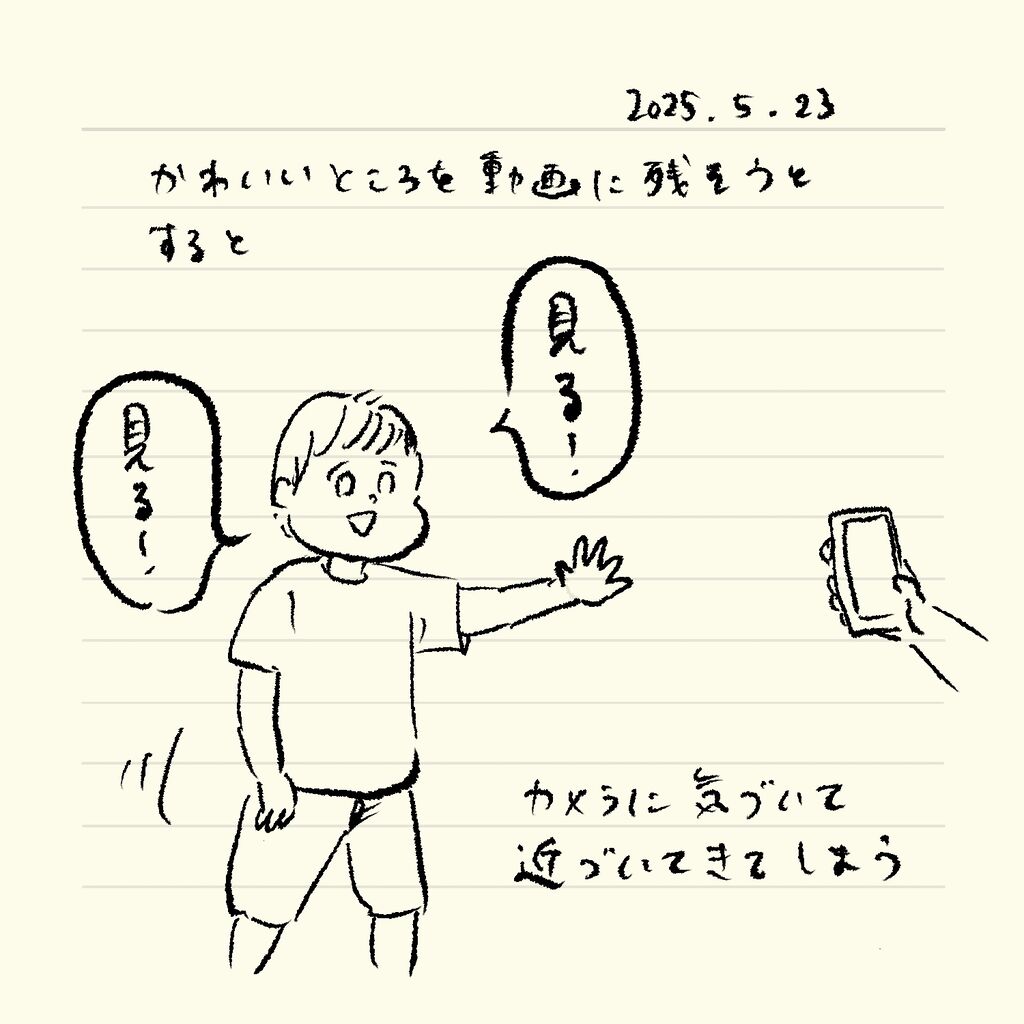 2025.5.23
かわいいところを動画に残そうと
すると
見る!
見る!
カメラに気づいて
近づいてきてしまう